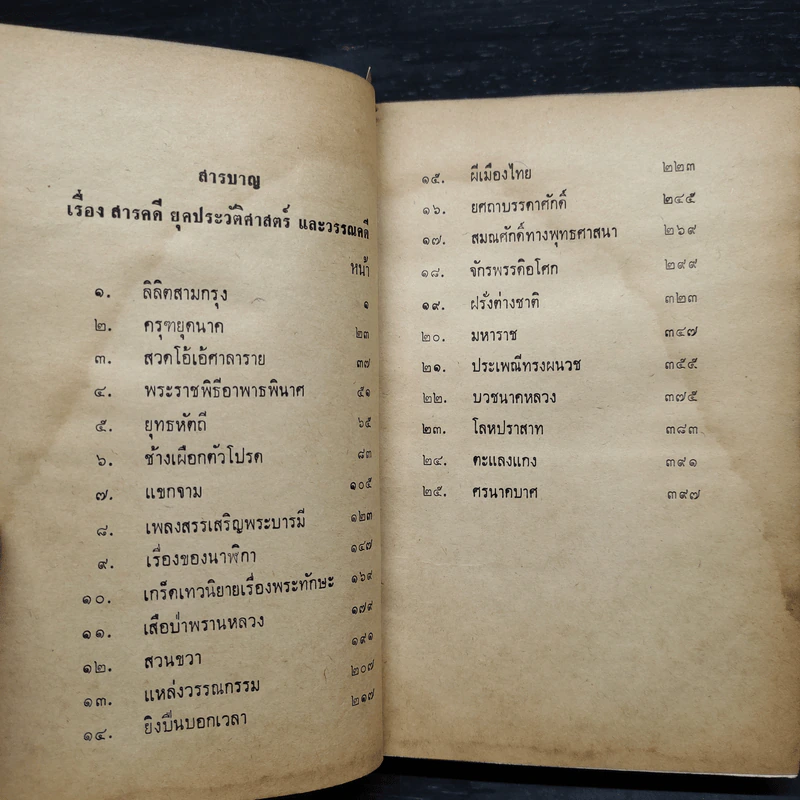 สารบาญ
เรื่อง สารคดี ยุคประวัติศาสตร์ และวรรณคดี
หน้า
๑. ลิลิตสามกรุง ๑
๒. ครุฑยุดนาค ๒๓
๓. สวดโอ้เอ้ศาลาราย ๓๗
๔. พระราชพิธีอาพาธพินาศ ๕๑
๕. ยุทธหัตถี ๖๕
๖. ช้างเผือกตัวโปรด ๘๓
๗. แขกจาม ๑๐๕
๘. เพลงสรรเสริญพระบารมี ๑๒๓
๙. เรื่องของนาฬิกา ๑๔๗
๑๐. เกร็ดเทวนิยายเรื่องพระทักษะ ๑๖๙
๑๑. เสือป่าพรานหลวง ๑๗๙
๑๒. สวนขวา ๑๙๑
๑๓. แหล่งวรรณกรรม ๒๐๗
๑๔. ยิงปืนบอกเวลา ๒๑๗
๑๕. ผีเมืองไทย ๒๒๓
๑๖. ยศถาบรรดาศักดิ์ ๒๔๕
๑๗. สมณศักดิ์ทางพุทธศาสนา ๒๖๙
๑๘. จักรพรรดิอโศก ๒๙๙
๑๙. ฝรั่งต่างชาติ ๓๒๓
๒๐. มหาราช ๓๔๗
๒๑. ประเพณีทรงผนวช ๓๕๕
๒๒. บวชนาคหลวง ๓๗๕
๒๓. โลหปราสาท ๓๘๓
๒๔. ตะแลงแกง ๓๙๑
๒๕. ศรนาคบาศ ๓๙๗